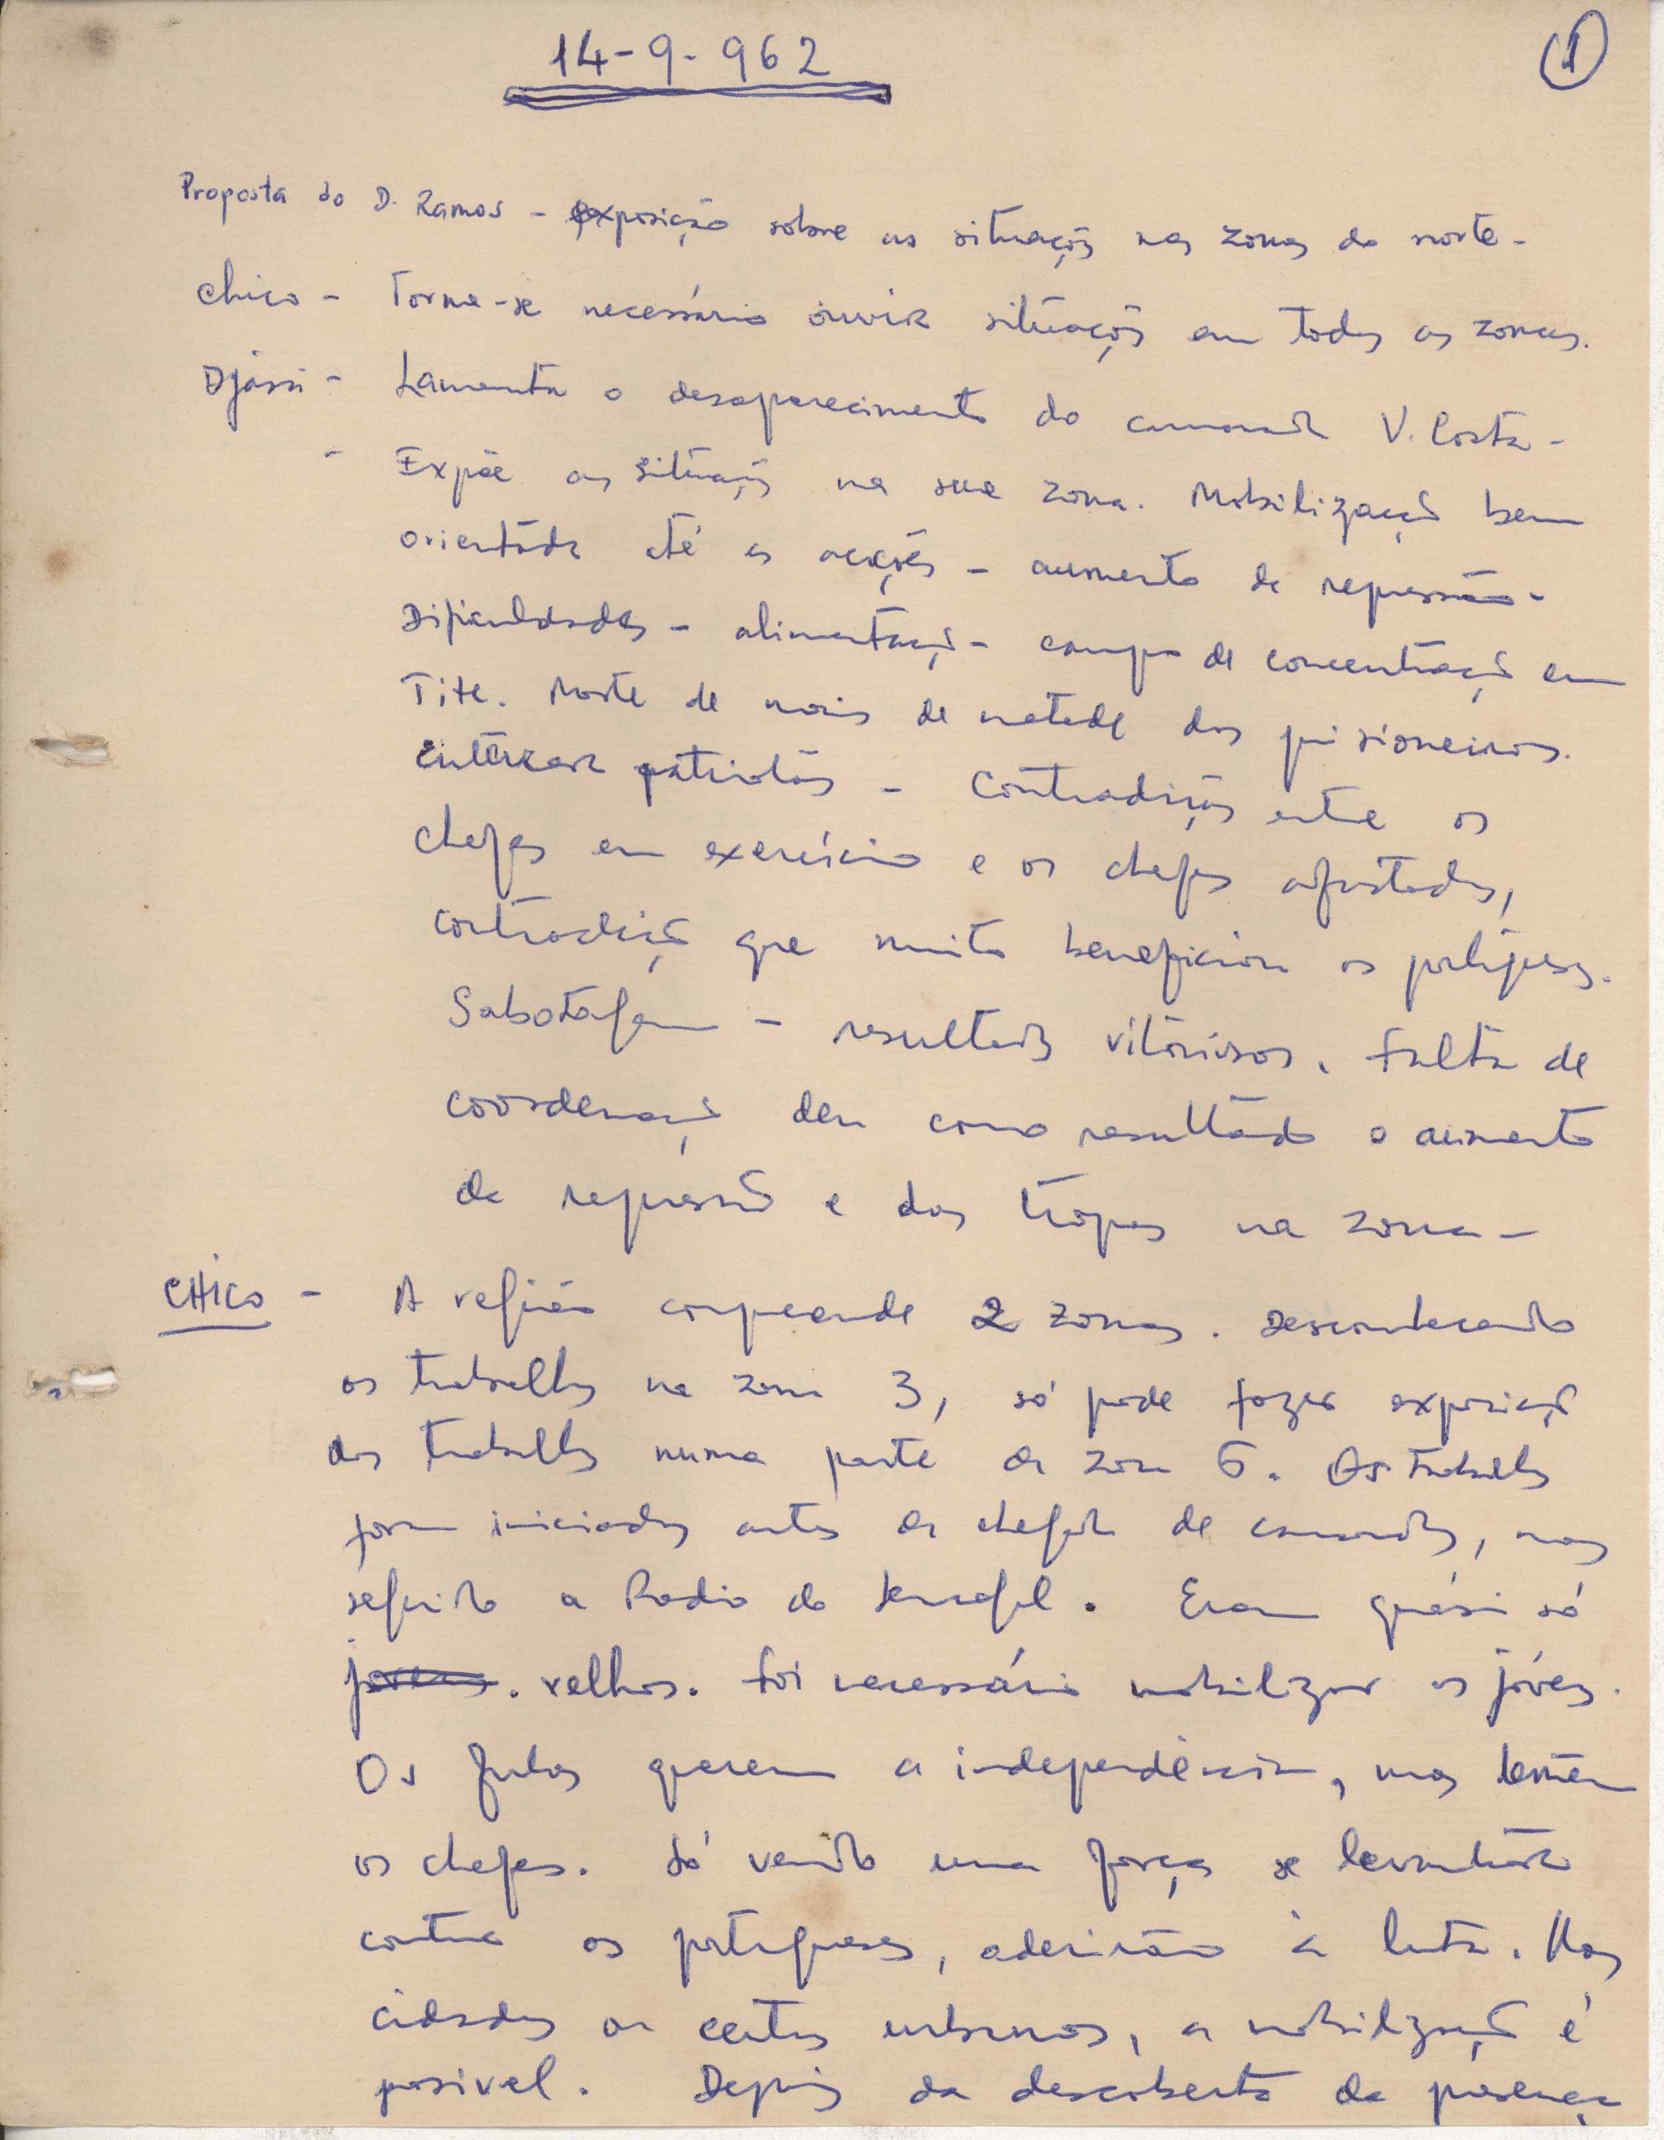 14-9-962
1
Proposta do D. Ramos - exposição sobre as situações nas zonas do norte -
Chico - Torna-se necessário ouvir situações em todas as zonas.
Djassi - Lamenta o desaparecimento do camarada V. Costa -
- Expõe as situações na sua zona. Mobilização bem
orientada até as acções - aumento da repressão -
Dificuldades - alimentação - campo de concentração em
Tite. Morte de mais de metade dos prisioneiros.
patriotas - Contradições entre os
chefes em exercício e os chefes afastados,
contradição que muito beneficiou os portugueses.
Sabotagem - resultados vitoriosos. Falta de
coordenação deu como resultado o aumento
da repressão e das tropas na zona -
CHICO - A região compreende 2 zonas. Desconhecendo
os trabalhos na zona 3, só pode fazer exposição
dos trabalhos numa parte da zona 6. Os trabalhos
foram iniciados antes da chegada de camaradas, mas
seguindo a Radio do Senegal. Eram quási só
jovens. velhos. Foi necessário mobilizar os jóvens.
Os fulas querem a independência, mas temem
os chefes. Só vendo uma força se levantar
contra os portugueses, aderirão à luta. Nas
cidades ou centros urbanos, a mobilização é
possivel. Depois da descoberta da presença